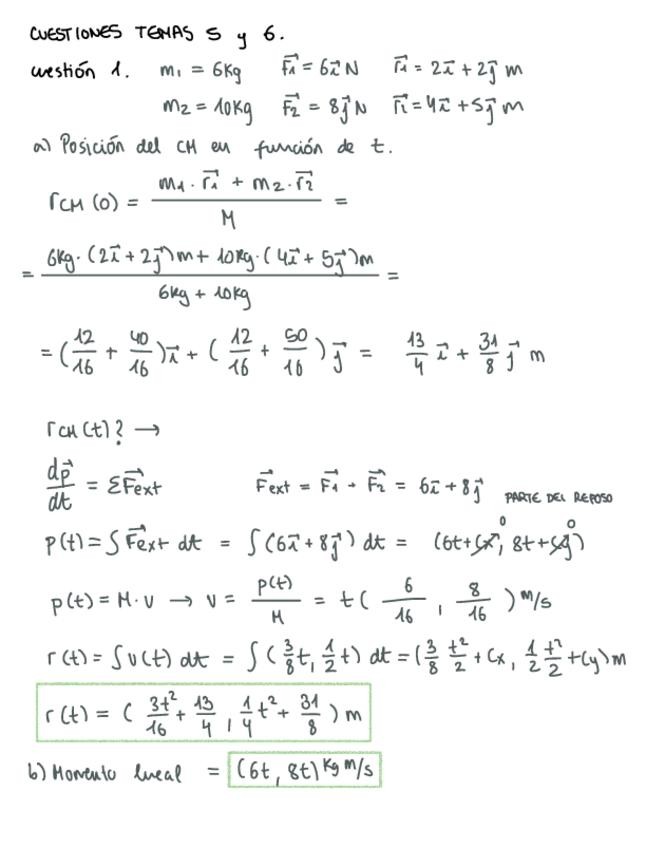 CUESTIONES TEMAS 5 y 6.
cuestión 1. m₁ = 6Kg F⃗₁ = 6i⃗ N r⃗₁ = 2i⃗ + 2j⃗ m
m₂ = 10Kg F⃗₂ = 8j⃗ N r⃗₁ = 4i⃗ + 5j⃗ m
a) Posición del CM en función de t.
r_CM (0) = (m₁ · r⃗₁ + m₂ · r⃗₂) / M =
= (6Kg · (2i⃗ + 2j⃗)m + 10Kg · (4i⃗ + 5j⃗)m) / (6Kg + 10Kg) =
= (12/16 + 40/16)i⃗ + (12/16 + 50/16)j⃗ = 13/4 i⃗ + 31/8 j⃗ m
r_CM (t)? →
dp⃗/dt = ΣF⃗ext F⃗ext = F⃗₁ + F⃗₂ = 6i⃗ + 8j⃗ PARTE DEL REPOSO
p(t) = ∫ F⃗ext dt = ∫ (6i⃗ + 8j⃗) dt = (6t + Cx⁰, 8t + Cy⁰)
p(t) = M · v → v = p(t)/M = t (6/16, 8/16) m/s
r(t) = ∫ v(t) dt = ∫ (3/8 t, 1/2 t) dt = (3/8 t²/2 + Cx, 1/2 t²/2 + Cy) m
r(t) = (3t²/16 + 13/4, 1/4 t² + 31/8) m
b) Momento lineal = (6t, 8t) Kg m/s